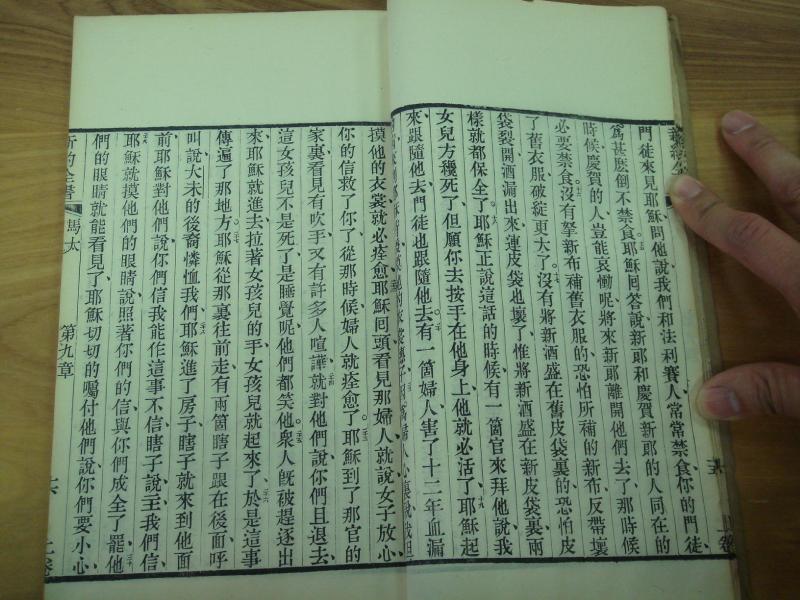 門徒來見耶穌問他說我們和法利賽人常常禁食你的門徒
爲甚麽倒不禁食耶穌回答說新郎和慶賀新郎的人同在的
時候慶賀的人豈能哀慟呢將來新郎離開他們去了那時候
必要禁食沒有拏新布補舊衣服的恐怕所補的新布反帶壞
了舊衣服破綻更大了沒有將新酒盛在舊皮袋裏的恐怕皮
袋裂開酒漏出來連皮袋也壞了惟將新酒盛在新皮袋裏兩
樣就都保全了十八耶穌正說這話的時候有一箇官來拜他說我
女兒方纔死了但願你去按手在他身上他就必活了十九耶穌起
來跟隨他去門徒也跟隨他去二十有一箇婦人害了十二年血漏
心裏說我但
摸他的衣裳就必痊愈耶穌回頭看見那婦人就說女子放心
你的信救了你了從那時候婦人就痊愈了二三耶穌到了那官的
家裏看見有吹手又有許多人喧嘩二四就對他們說你們且退去
這女孩兒不是死了是睡覺呢他們都笑他二五衆人旣被趕逐出
來耶穌就進去拉著女孩兒的手女孩兒就起來了二六於是這事
傳遍了那地方二七耶穌從那裏往前走有兩箇瞎子跟在後面呼
叫說大未的後裔憐恤我們二八耶穌進了房子瞎子就來到他面
前耶穌對他們說你們信我能作這事不信瞎子說主我們信
二九耶穌就摸他們的眼睛說照著你們的信與你們成全了罷三十他
們的眼睛就能看見了耶穌切切的囑付他們說你們要小心
新約全書 馬太 第九章 六 上卷